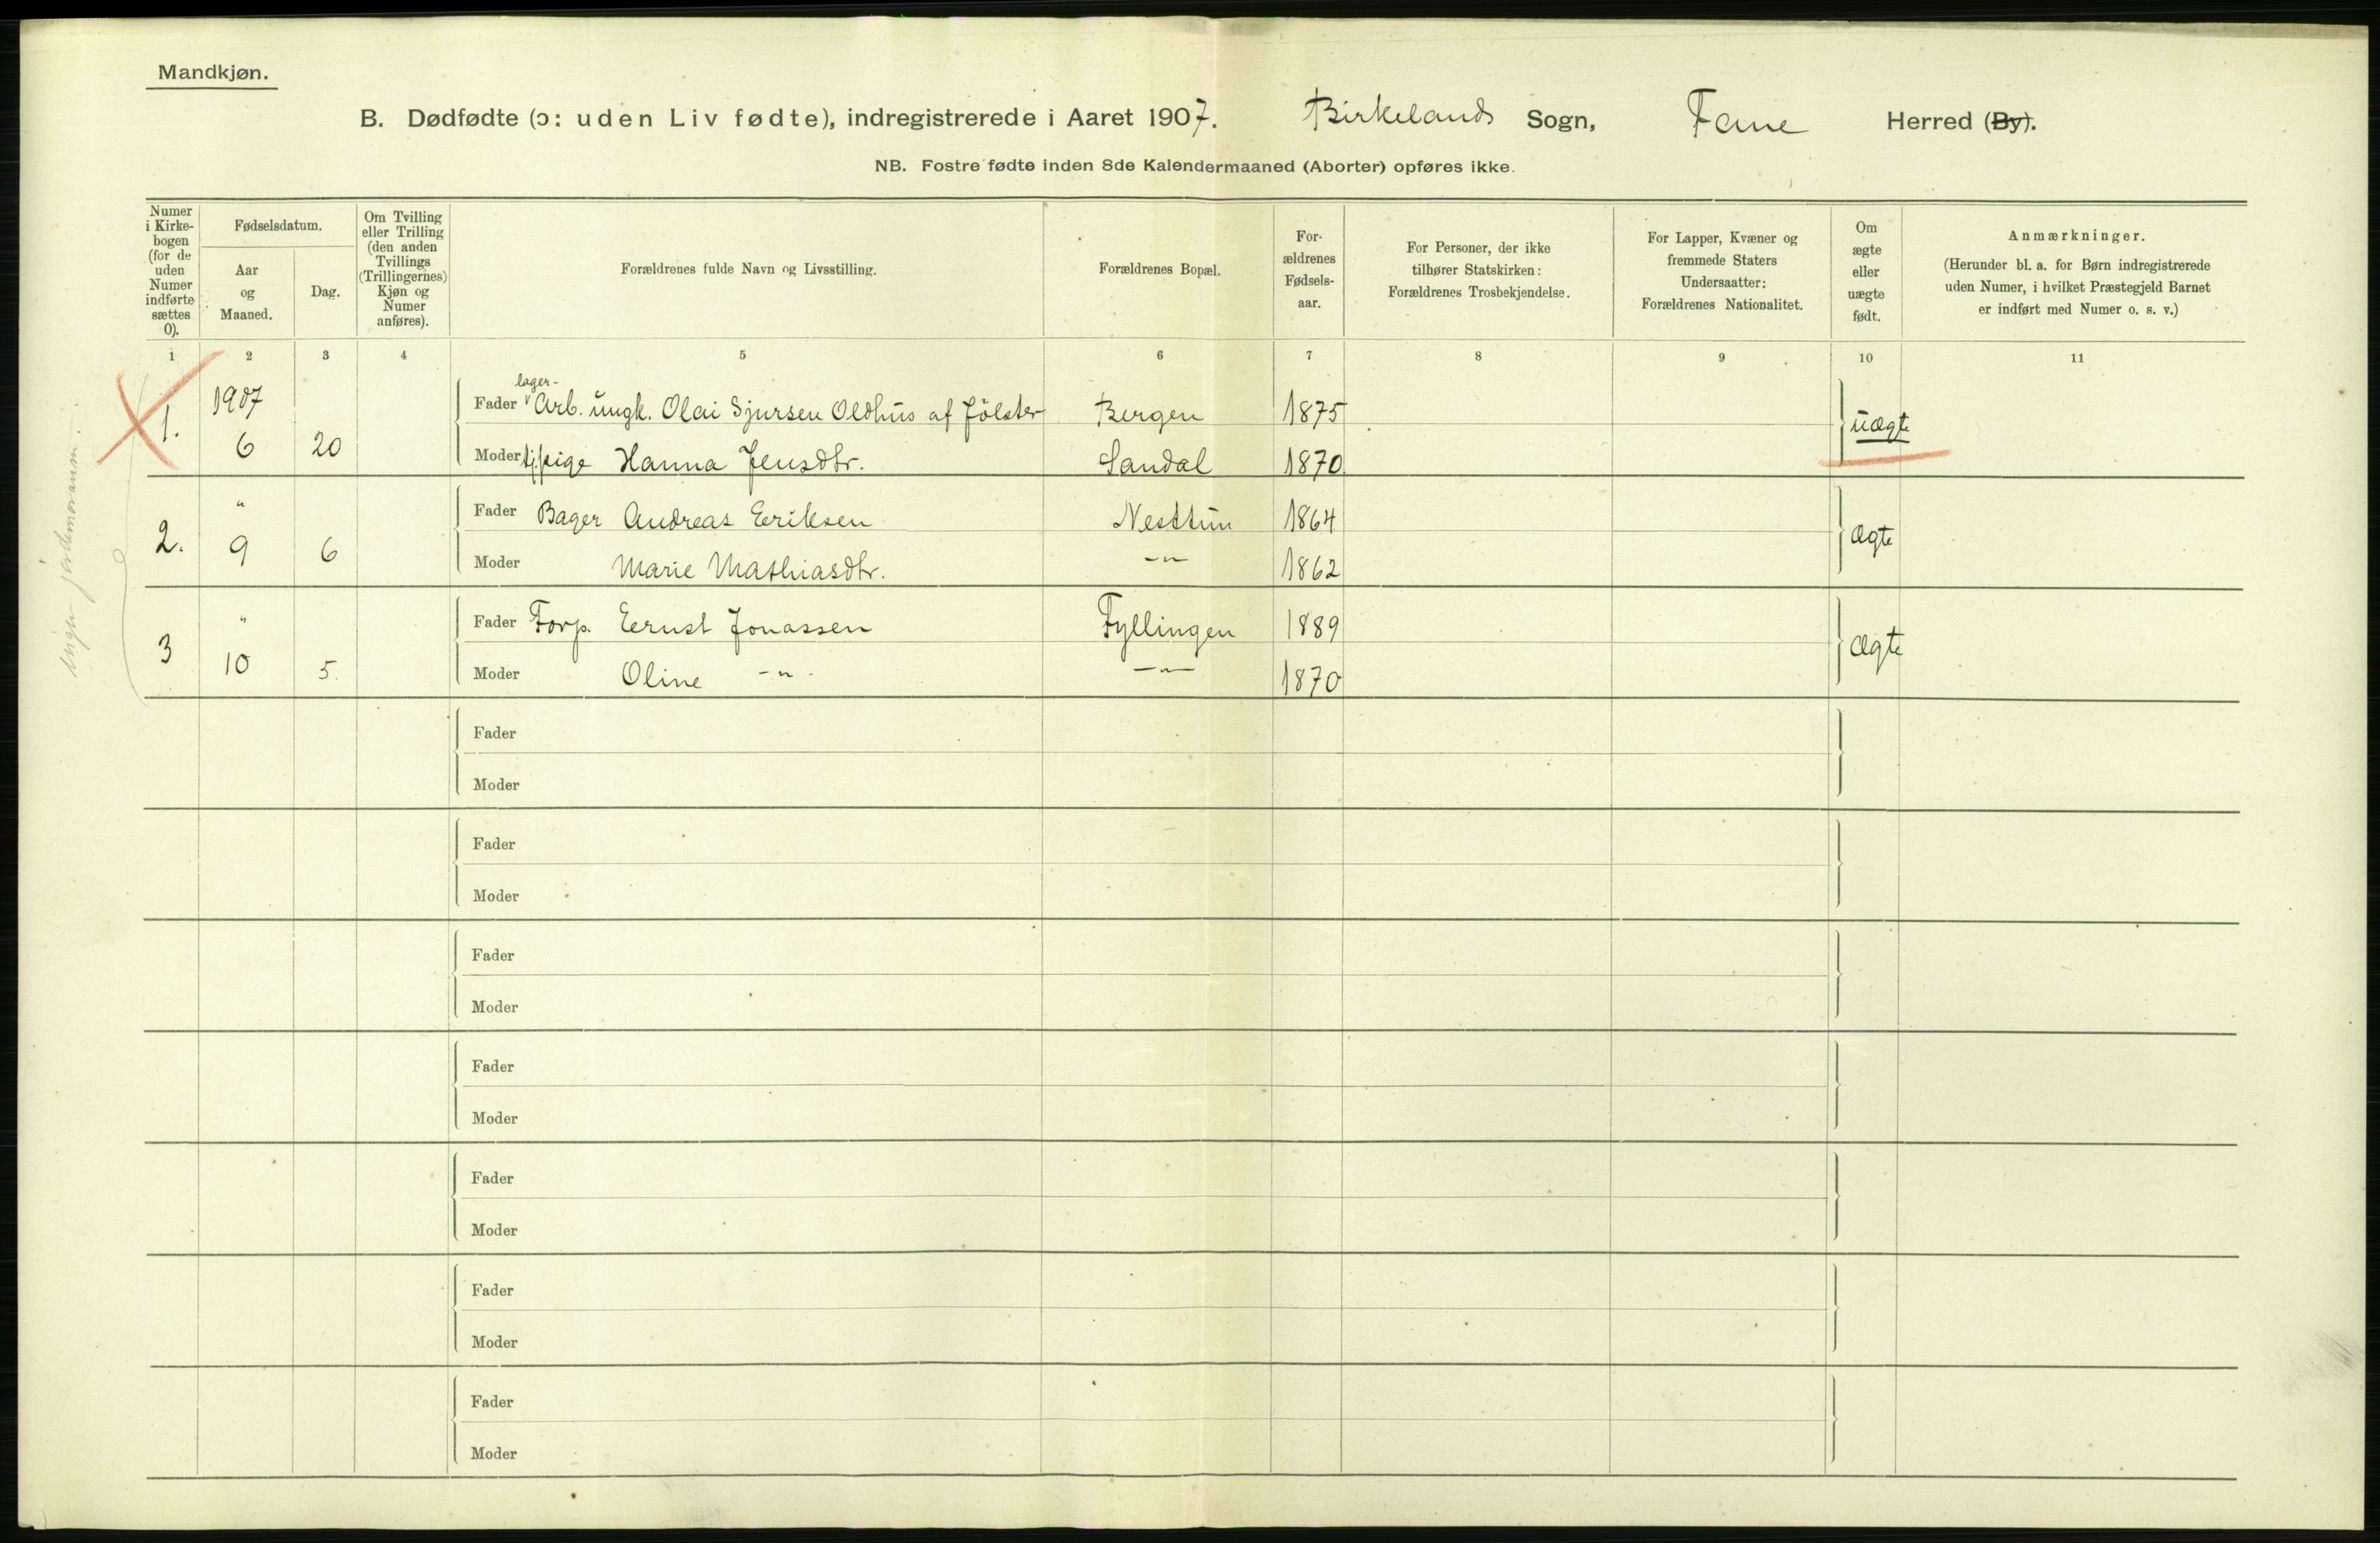 Mandkjøn.
B. Dødfødte (ɔ: uden Liv fødte), indregistrerede i Aaret 1907. Birkelands Sogn, Fane Herred (By).
NB. Fostre fødte inden 8de Kalendermaaned (Aborter) opføres ikke.
Numer i Kirke-bogen (for de uden Numer indførte sættes 0).
Fødselsdatum.
Aar og Maaned.
Dag.
Om Tvilling eller Trilling (den anden Tvillings (Trillingernes) Kjøn og Numer anføres).
Forældrenes fulde Navn og Livsstilling.
Forældrenes Bopæl.
For-ældrenes Fødsels-aar.
For Personer, der ikke tilhører Statskirken: Forældrenes Trosbekjendelse.
For Lapper, Kvæner og fremmede Staters Undersaatter: Forældrenes Nationalitet.
Om ægte eller uægte født.
Anmærkninger.
(Herunder bl. a. for Børn indregistrerede uden Numer, i hvilket Præstegjeld Barnet er indført med Numer o. s. v.)
1 2 3 4 5 6 7 8 9 10 11
lager-
1. 1907 Fader Arb. ungk. Olai Sjursen Oldhus af Jölster Bergen 1875 uægte
6 20 Moder tj.pige Hanna Jensdtr. Sandal 1870
2. " Fader Bager Andreas Eeriksen Nesttun 1864 ægte
9 6 Moder Marie Mathiasdtr. -"- 1862
3 " Fader Forp. Eernst Jonassen Fyllingen 1889 ægte
10 5. Moder Oline -"- -"- 1870
Fader
Moder
Fader
Moder
Fader
Moder
Fader
Moder
Fader
Moder
Fader
Moder
Fader
Moder
ingen jordemoranm.